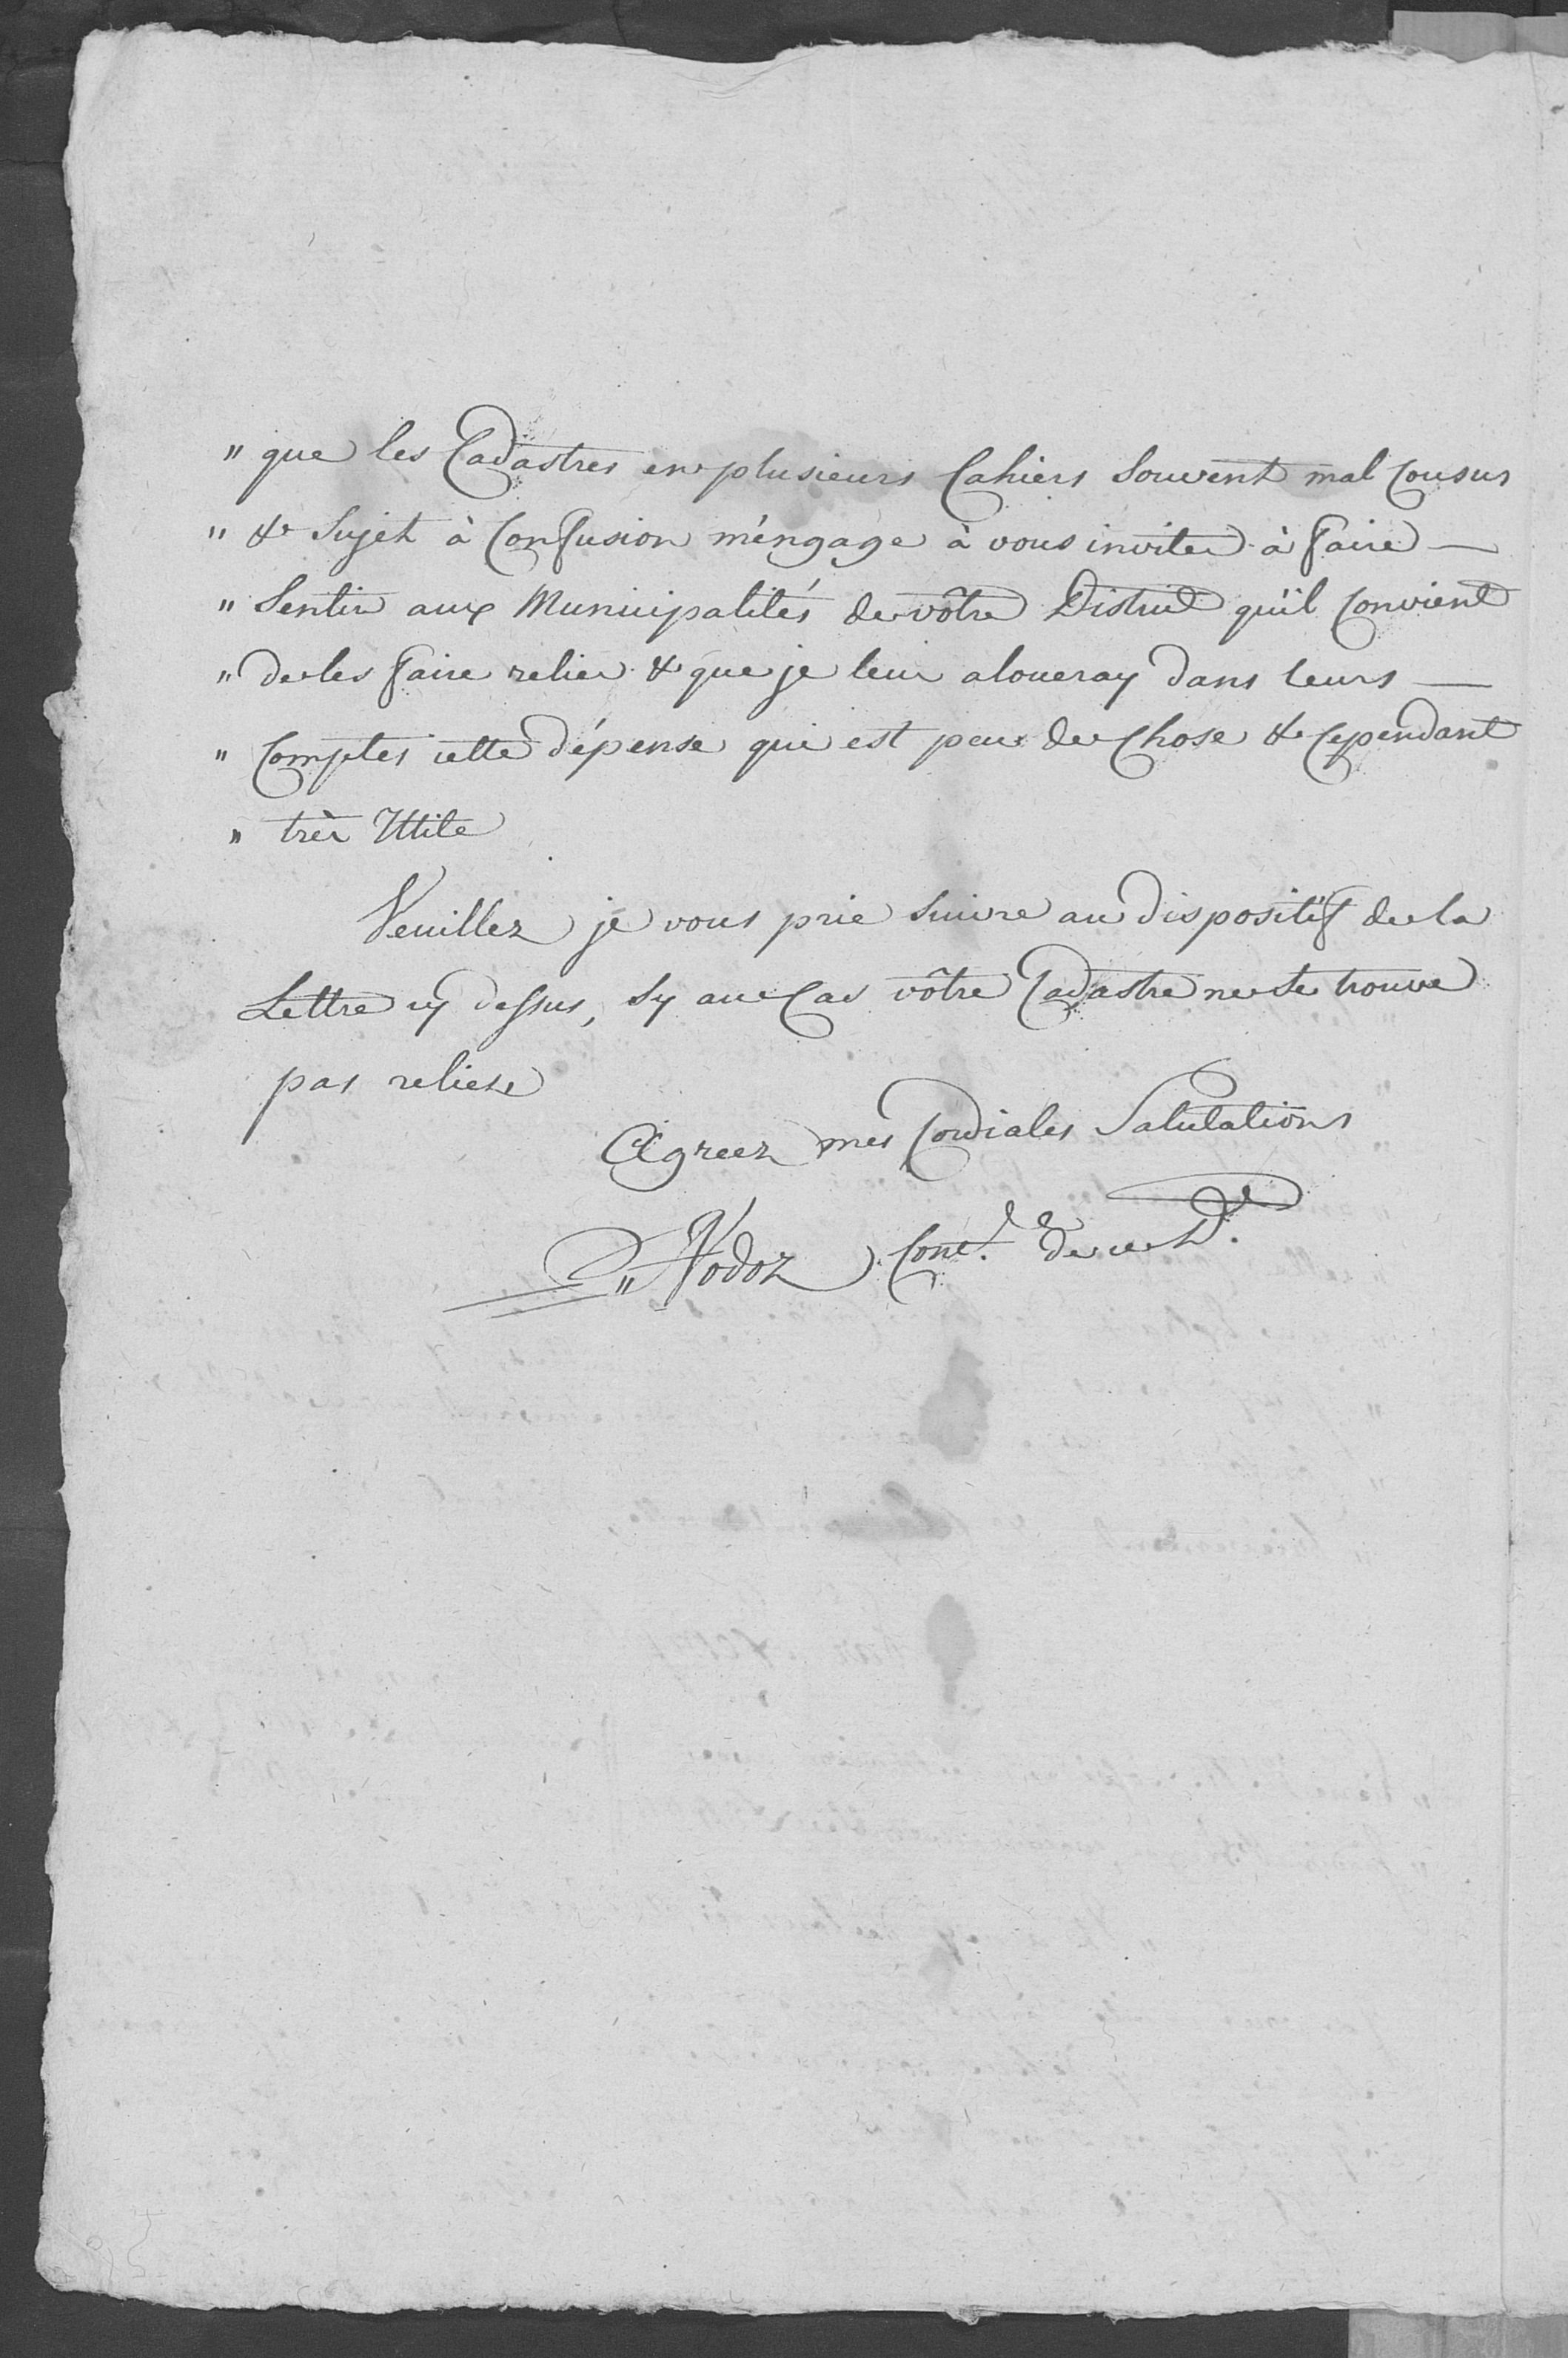 " que les Cadastres en plusieurs Cahiers Souvent mal Cousus
" & Sujet à Confusion m'éngage à vous inviter à faire —
" Sentir aux Municipalités de vôtre District qu'il Convient
" de les faire relier & que je leur aloueray dans leurs —
" Comptes cette dépense qui est peu de Chose & Cependant
" très Utile
Veuillez je vous prie Suivre au dispositif de la
Lettre cy dessus, Sy au Cas vôtre Cadastre ne Se trouve
pas reliere
Agreez mes Cordiales Salutations
Vodoz de ce D.t